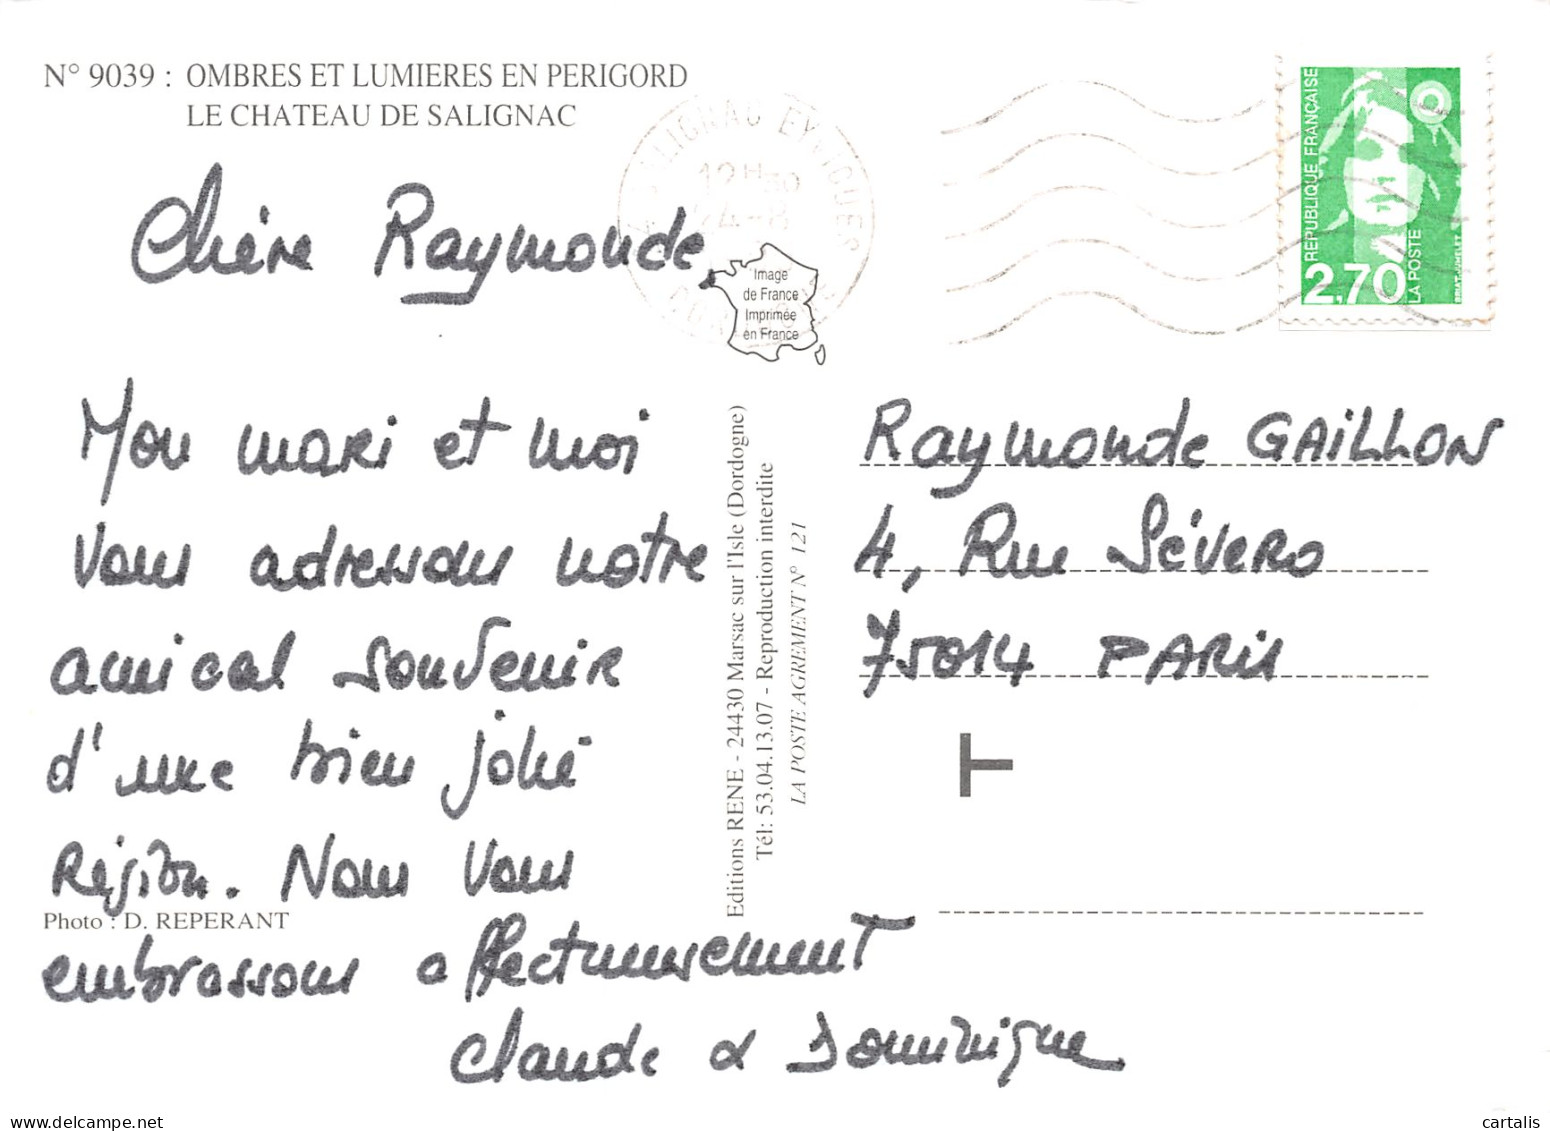 N° 9039 : OMBRES ET LUMIERES EN PERIGORD
LE CHATEAU DE SALIGNAC
SALIGNAC EYVIGUES
12H30
24-8
Image
de France
Imprimée
en France
REPUBLIQUE FRANÇAISE
2,70
LA POSTE
Chère Raymonde,
Mon mari et moi
vous adressons notre
amical souvenir
d'une bien jolie
Région. Nous vous
embrassons affectueusement
Claude & Dominique
Photo : D. REPERANT
Editions RENE - 24430 Marsac sur l'Isle (Dordogne)
Tél: 53.04.13.07 - Reproduction interdite
LA POSTE AGREMENT N° 121
Raymonde GAILLON
4, Rue Sévero
75014 PARIS
T
delcampe.net
cartalis